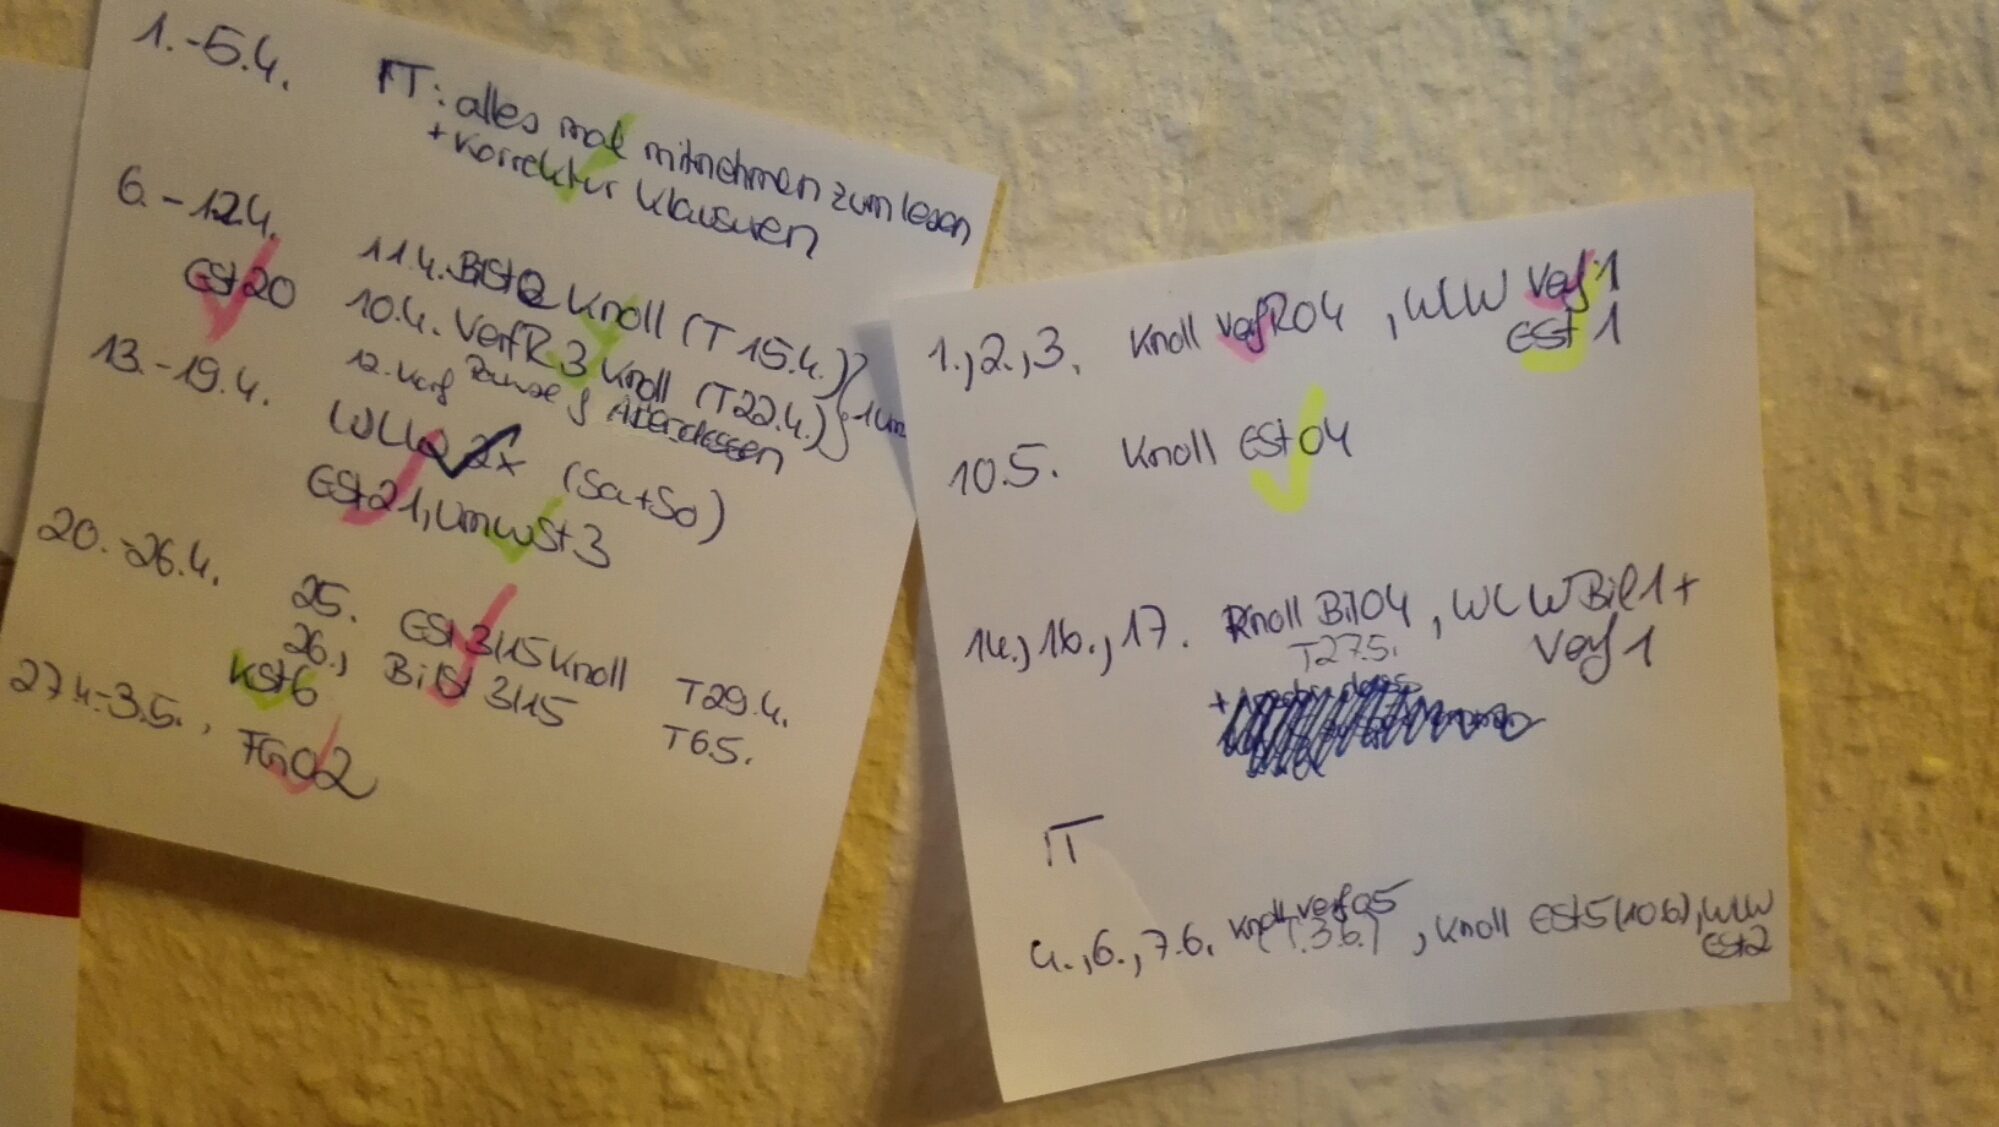 1.-5.4. IT: alles mal mitnehmen zum lesen
+ Korrektur Klausuren
6.-12.4. 11.4. BilSt2 Knoll (T 15.4.)
ESt20 10.4. VerfR 3 Knoll (T22.4.)
12. Verf Pause
13.-19.4. WLW 2x (Sa+So)
ESt21, UmwSt3
20.-26.4. 25. ESt 3/15 Knoll T29.4.
26., BilSt 3/15 T6.5.
KSt6
27.4.-3.5., FG02
1.,2.,3. Knoll VerfR04, WLW Verf 1
ESt 1
10.5. Knoll ESt04
14.,16.,17. Knoll Bil04, WLW Bil1+
T27.5. Verf 1
+
IT
4.,6.,7.6. Knoll Verf05, Knoll ESt5(10.6), WLW
(T.3.6.) ESt2